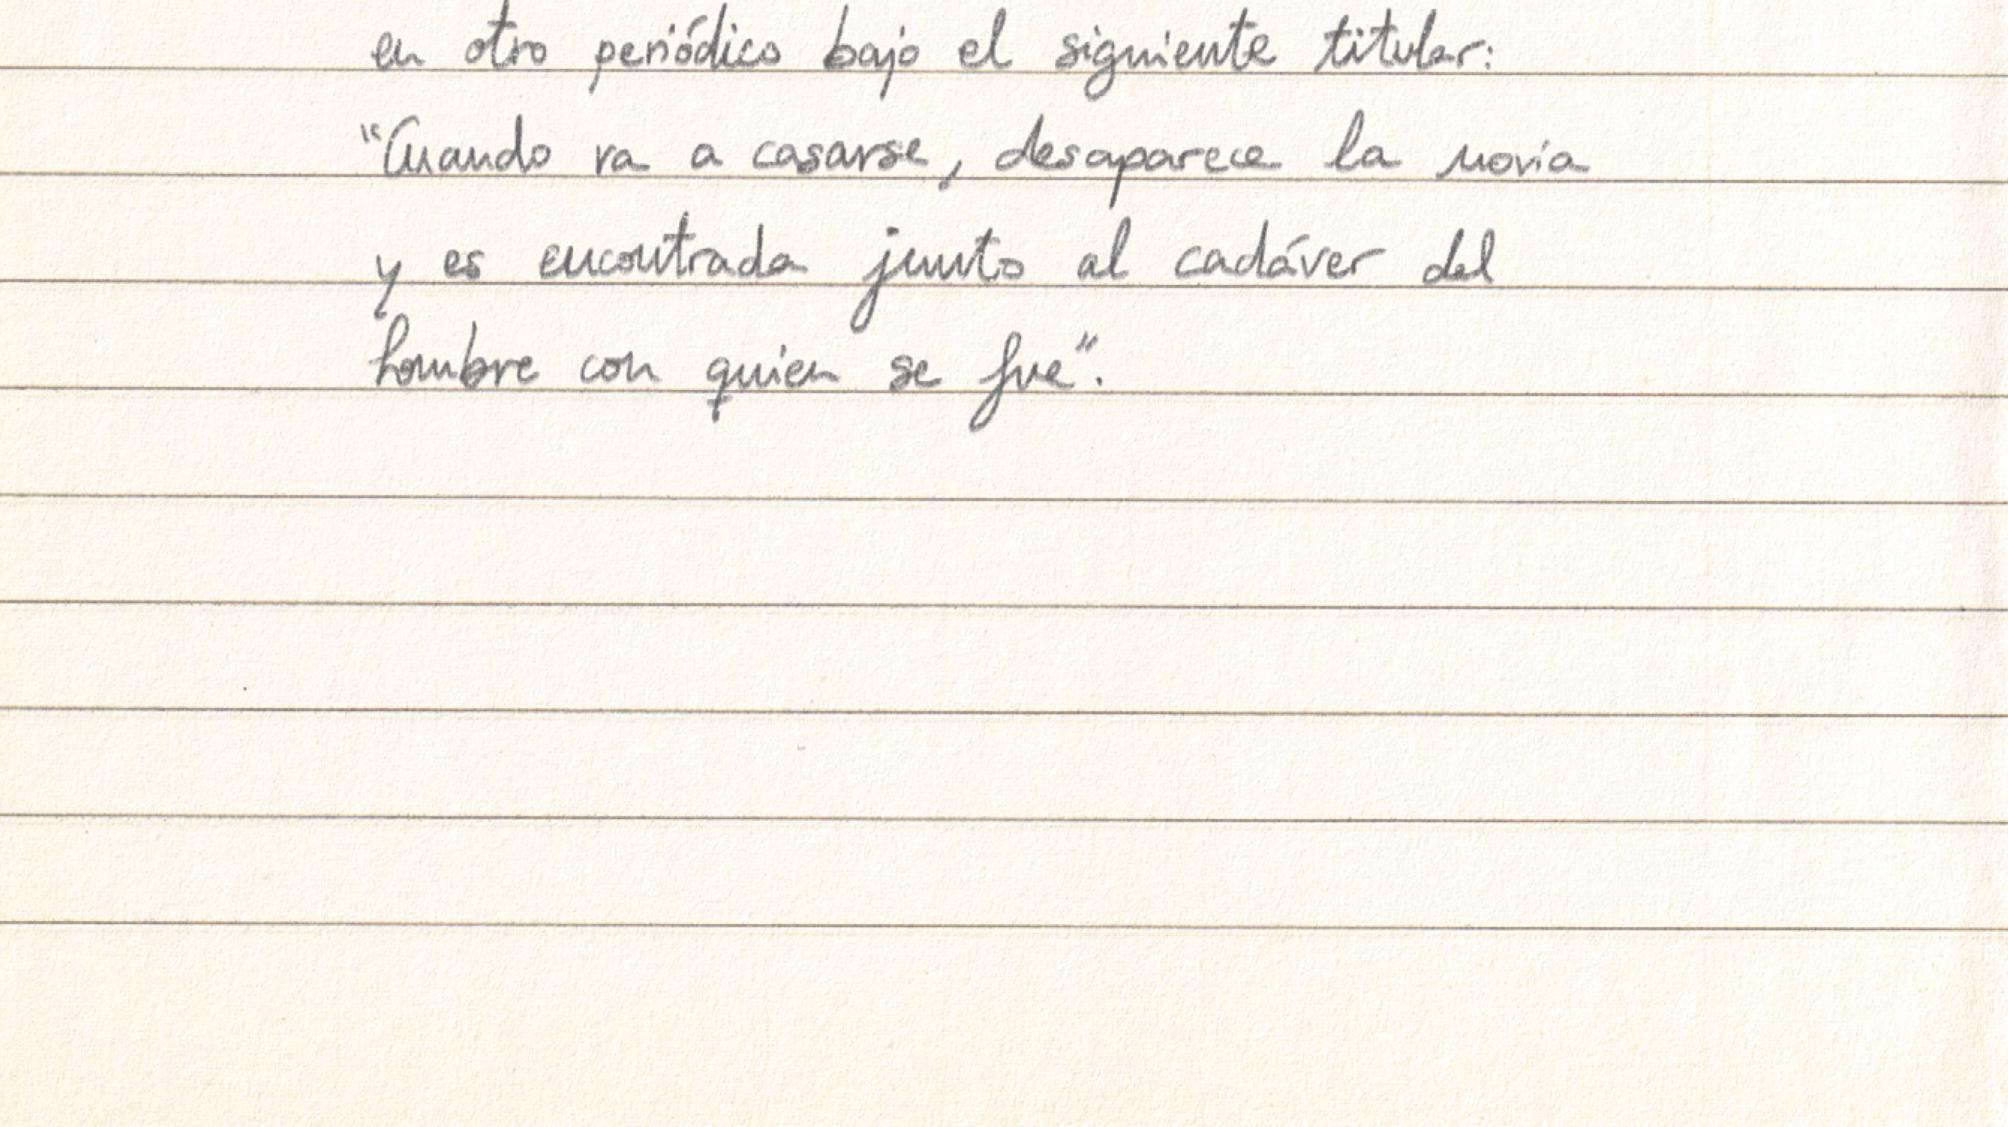 en otro periódico bajo el siguiente titular:
“Cuando va a casarse, desaparece la novia
y es encontrada junto al cadáver del
hombre con quien se fue”.